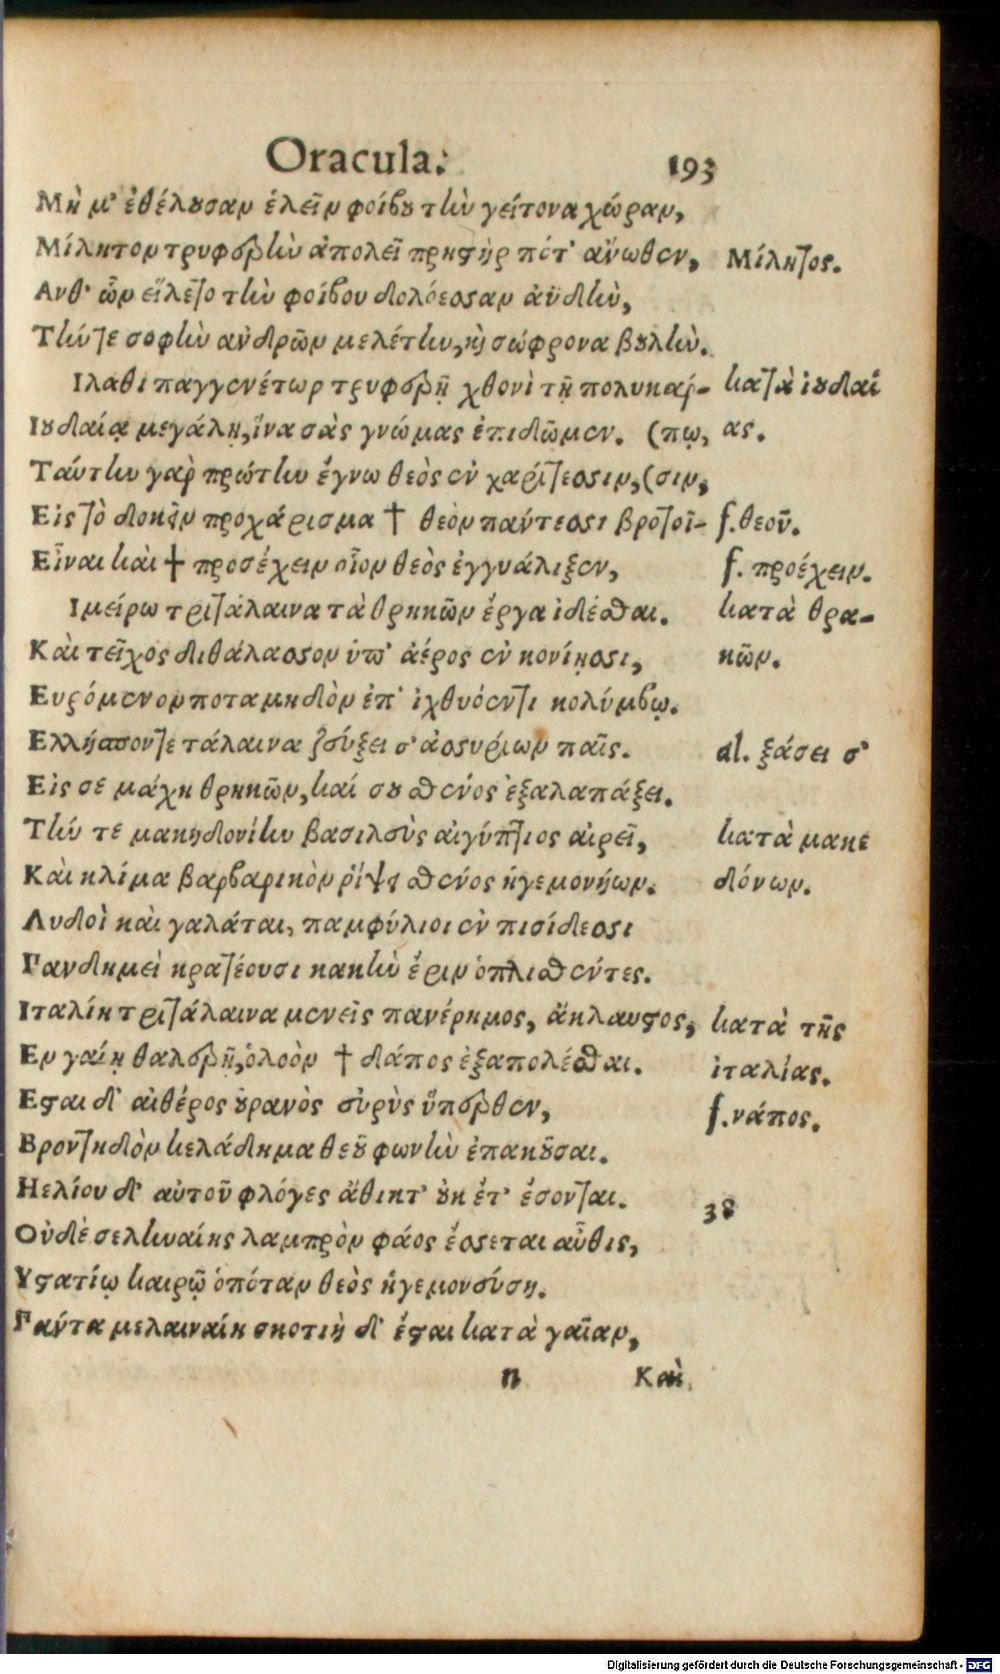 Oracula. 193
Μὴ μ' ἐθέλουσαν ἑλεῖν φοίβου τὴν γείτονα χώραν,
Μίλητον τρυφερὴν ἀπολεῖ πρηστὴρ πότ' ἄνωθεν, Μίλητος.
Ανθ' ὧν εἵλετο τὴν φοίβου δολόεσσαν ἀϋδὴν,
Τήν τε σοφὴν ἀνδρῶν μελέτην, καὶ σώφρονα βουλὴν.
Ιλαθι παγγενέτωρ τρυφερῇ χθονὶ τῇ πολυκάρ- κατὰ ἰουδαί
Ιουδαίᾳ μεγάλῃ, ἵνα σὰς γνώμας ἐπιδῶμεν. (πῳ, ας.
Ταύτην γὰρ πρώτην ἔγνω θεὸς ἐν χαρίτεσσιν, (σιν,
Εἰς τὸ δοκεῖν προχάρισμα † θεὸν πάντεσσι βροτοῖ- f. θεοῦ.
Εἶναι καὶ † προσέχειν οἷον θεὸς ἐγγυάλιξεν, f. προέχειν.
Ιμείρω τριτάλαινα τὰ θρηκῶν ἔργα ἰδέσθαι. κατὰ θρα-
Καὶ τεῖχος διθάλασσον ὑπ' ἀέρος ἐν κονίῃσσι, κῶν.
Ευρόμενον ποταμηδὸν ἐπ' ἰχθυόεντι κολύμβῳ.
Ελλήσποντε τάλαινα ζεύξει σ' ἀσσυρίων παῖς. al. ξάσει σ'
Εἰς σὲ μάχη θρηκῶν, καί σου σθένος ἐξαλαπάξει.
Τήν τε μακηδονίην βασιλεὺς αἰγύπτιος αἱρεῖ, κατὰ μακε
Καὶ κλίμα βαρβαρικὸν ῥίψει σθένος ἡγεμονήων. δόνων.
Λυδοὶ καὶ γαλάται, παμφύλιοι ἐν πισίδεσσι
Πανδημεὶ κρατέουσι κακὴν ἔριν ὁπλισθέντες.
Ιταλίη τριτάλαινα μενεῖς πανέρημος, ἄκλαυστος, κατὰ τῆς
Εν γαίῃ θαλερῇ, ὀλοὸν † δάπος ἐξαπολέσθαι. ἰταλίας.
Εσται δ' αἰθέρος οὐρανὸς εὐρὺς ὕπερθεν, f. νάπος.
Βροντηδὸν κελάδημα θεοῦ φωνὴν ἐπακοῦσαι.
Ηελίου δ' αὐτοῦ φλόγες ἄθικτ' οὐκ ἔτ' ἔσονται. 38
Οὐδὲ σεληναίης λαμπρὸν φάος ἔσσεται αὖθις,
Υστατίῳ καιρῷ ὁπόταν θεὸς ἡγεμονεύσῃ.
Πάντα μελαιναίη σκοτιὴ δ' ἔσται κατὰ γαῖαν,
n Καὶ
Digitalisierung gefördert durch die Deutsche Forschungsgemeinschaft - DFG